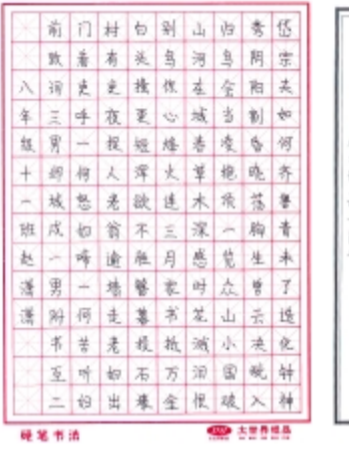 岱宗夫如何齐鲁青未了造化钟神
秀阴阳割昏晓荡胸生曾云决眦入
归鸟会当凌绝顶一览众山小国破
山河在城春草木深感时花溅泪恨
别鸟惊心烽火连三月家书抵万金
白头搔更短浑欲不胜簪暮投石壕
村有吏夜捉人老翁逾墙走老妇出
门看吏呼一何怒妇啼一何苦听妇
前致词三男邺城戍一男附书至二
八年级十一班赵潇潇
硬笔书法
大世界纸品